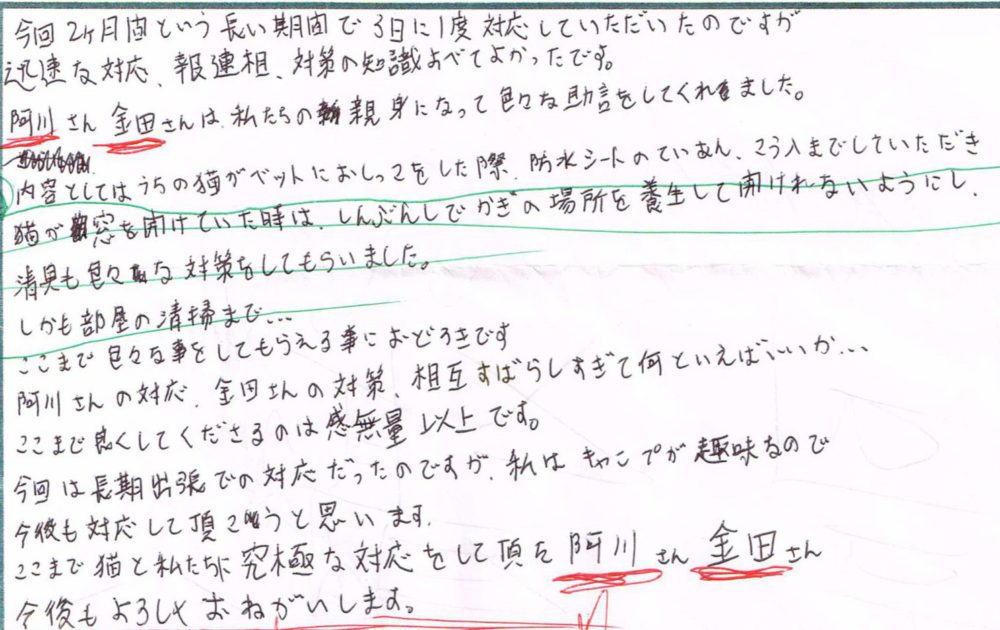 今回2ヶ月間という長い期間で3日に1度対応していただいたのですが
迅速な対応、報連相、対策の知識すべてよかったです。
阿川さん 金田さんは、私たちの親身になって色々な助言をしてくれました。
内容としてはうちの猫がベットにおしっこをした際、防水シートのていあん、こう入までしていただき
猫が窓を開けていた時は、しんぶんしでかぎの場所を養生して開けれないようにし、
消臭も色々な対策をしてもらいました。
しかも部屋の清掃まで…
ここまで色々な事をしてもらえる事におどろきです
阿川さんの対応、金田さんの対策、相互すばらしすぎて何といえばいいか…
ここまで良くしてくださるのは感無量以上です。
今回は長期出張での対応だったのですが、私はキャンプが趣味なので
今後も対応して頂こうと思います。
ここまで猫と私たちに究極な対応をして頂た 阿川さん 金田さん
今後もよろしくおねがいします。